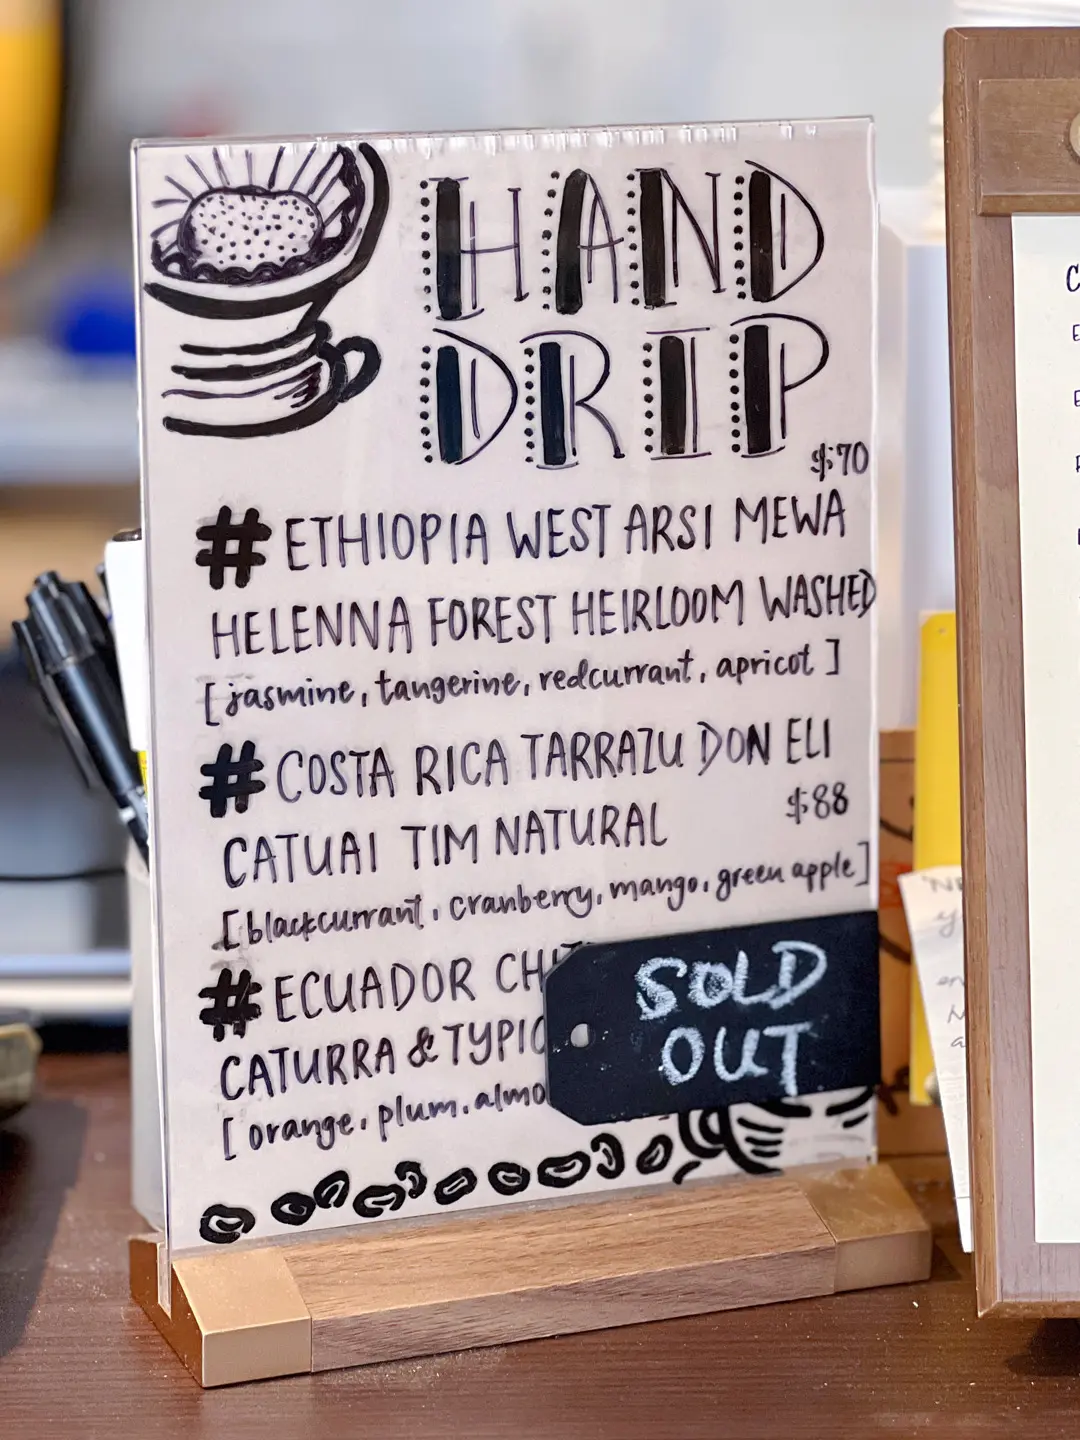 HAND
DRIP
$70
# ETHIOPIA WEST ARSI MEWA
HELENNA FOREST HEIRLOOM WASHED
[jasmine, tangerine, redcurrant, apricot]
# COSTA RICA TARRAZU DON ELI
$88
CATUAI TIM NATURAL
[blackcurrant, cranberry, mango, green apple]
# ECUADOR
CATURRA &
[orange, plum,
SOLD
OUT